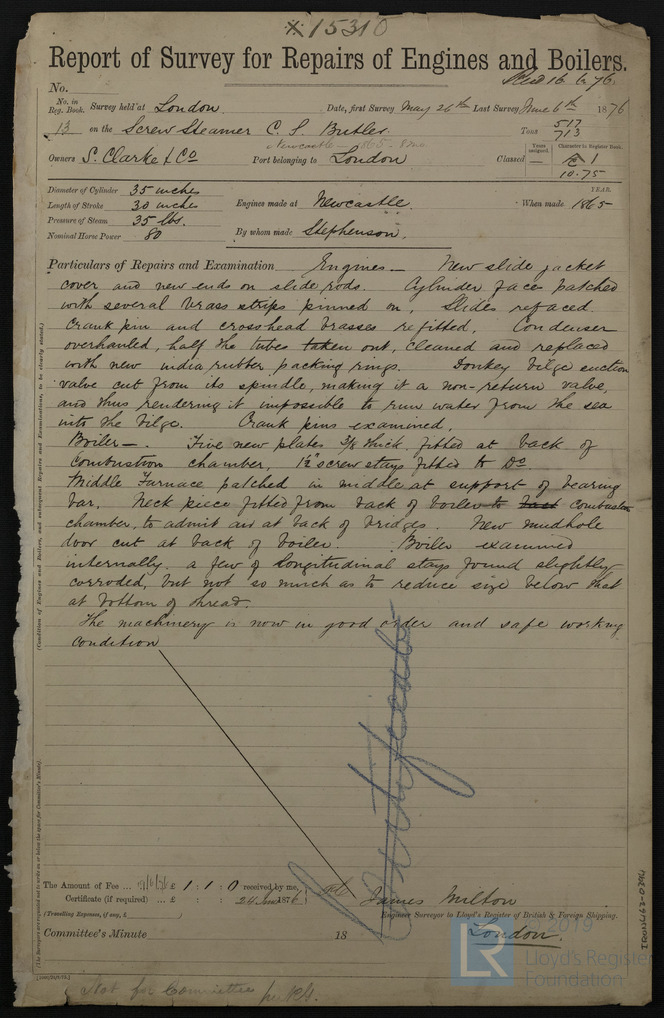 * 15310
Report of Survey for Repairs of Engines and Boilers.
16 6 76
No.
No. in Reg. Book. Survey held at London Date, first Survey May 26th Last Survey June 6th 1876
13 on the Screw Steamer C. S. Butler Tons 517 713
Newcastle 1865
Owners S. Clarke & Co Port belonging to London Years assigned. Classed — Character in Register Book. 1 10.75
Diameter of Cylinder 35 inches
Length of Stroke 30 inches
Pressure of Steam 35 lbs.
Nominal Horse Power 80
Engines made at Newcastle. When made YEAR. 1865
By whom made Stephenson.
Particulars of Repairs and Examination Engines — New slide jacket
cover and new ends on slide rods. Cylinder faces patched
with several brass strips pinned on, Slides refaced.
Crank pin and crosshead brasses refitted. Condenser
overhauled, half the tubes taken out, cleaned and replaced
with new india rubber packing rings. Donkey bilge suction
valve cut from its spindle, making it a non-return valve,
and thus rendering it impossible to run water from the sea
into the bilge. Crank pins examined.
Boiler —. Five new plates 3/8 thick fitted at back of
combustion chamber, 1½" screw stays fitted to Do
Middle Furnace patched in middle at support of bearing
bar. Neck piece fitted from back of boiler to combustion
chamber, to admit air at back of bridges. New mudhole
door cut at back of boiler. Boiler examined
internally. a few of longitudinal stays found slightly
corroded, but not so much as to reduce size below that
at bottom of thread.
The machinery is now in good order and safe working
condition
(Condition of Engines and Boilers, and subsequent Repairs and Examinations, to be clearly stated.)
(The Surveyors are requested not to write on or below the space for Committee's Minute.)
Certificate
The Amount of Fee ... 9/6/76 £ 1 : 1 : 0 received by me,
Certificate (if required) ... £ : : 24 June 1876
(Travelling Expenses, if any, £ )
James Milton
Engineer Surveyor to Lloyd's Register of British & Foreign Shipping.
London.
Committee's Minute 18
Not for Committee
IRON562-0394
2019
LR
Lloyd's Register
Foundation